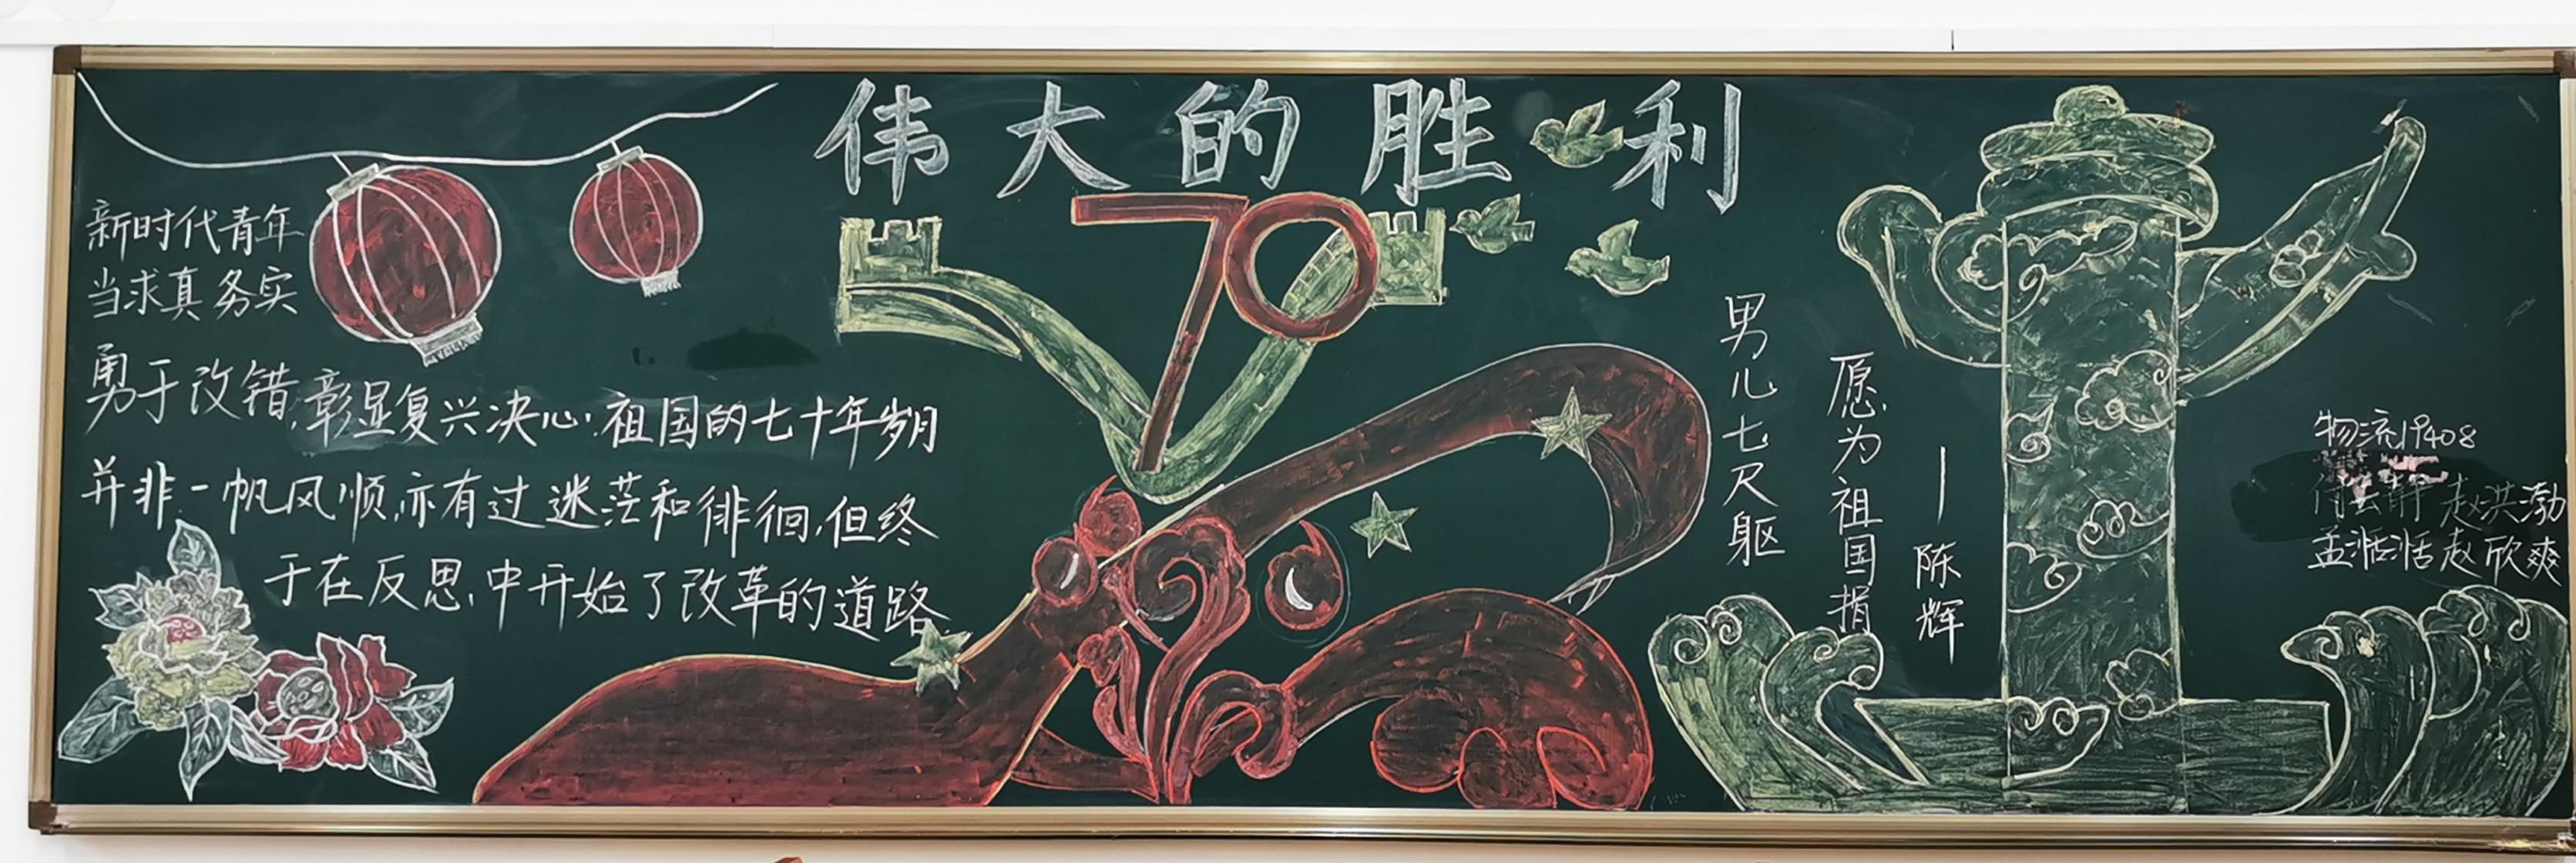 伟大的胜利
70
新时代青年
当求真务实
勇于改错,彰显复兴决心.祖国的七十年岁月
并非一帆风顺,亦有过迷茫和徘徊,但终
于在反思中开始了改革的道路.
男儿七尺躯
愿为祖国捐
—陈辉
物流19408
付云静 赵洪渤
孟湉湉 赵欣爽